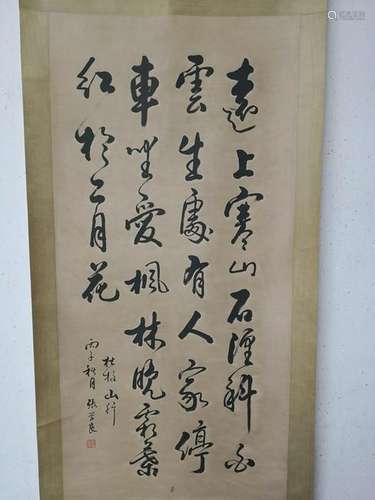 遠上寒山石徑斜白
雲生處有人家停
車坐愛楓林晚霜葉
紅於二月花
杜牧山行
丙子秋月 張学良